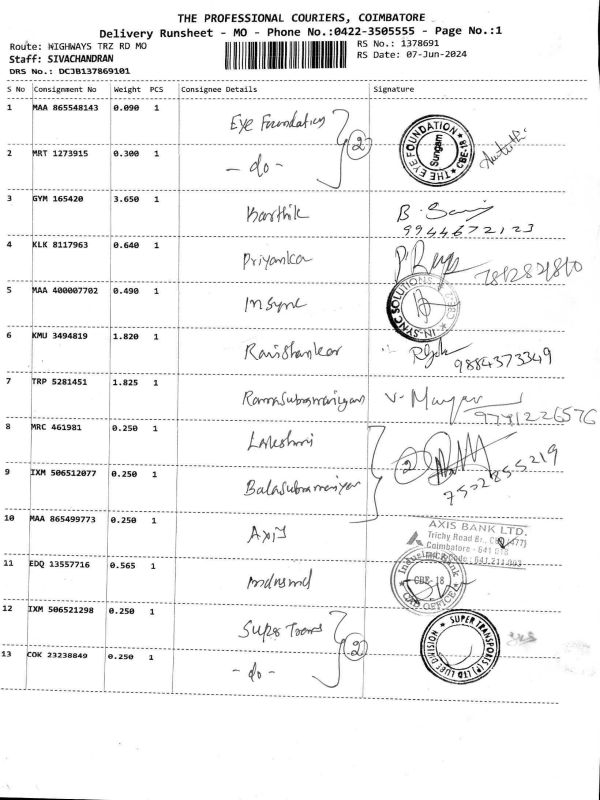 THE PROFESSIONAL COURIERS, COIMBATORE
Delivery Runsheet - MO - Phone No.:0422-3505555 - Page No.:1
Route: HIGHWAYS TRZ RD MO
RS No.: 1378691
Staff: SIVACHANDRAN
RS Date: 07-Jun-2024
DRS No.: DCJB137869101
S No Consignment No Weight PCS Consignee Details Signature
1 MAA 865548143 0.090 1 Eye Foundation
THE EYE FOUNDATION CBE-18 Sungam
2 MRT 1273915 0.300 1 - do - 2
3 GYM 165420 3.650 1 Karthik B.
9944672123
4 KLK 8117963 0.640 1 Priyanka
5 MAA 400007702 0.490 1 Insync
IN-SYNC SOLUTIONS CBE
6 KMU 3494819 1.820 1 Ravishankar 9884373349
7 TRP 5281451 1.825 1 Ramasubramaniyam V.
9791226576
8 MRC 461981 0.250 1 Lakshmi 2
9 IXM 506512077 0.250 1 Balasubramaniyan 7502855219
10 MAA 865499773 0.250 1 Axis
AXIS BANK LTD.
Trichy Road Br., CBE (477)
Coimbatore - 641 018
Code: 641.211.003
11 EDQ 13557716 0.565 1 Indusind
IndusInd Bank CBE-18
12 IXM 506521298 0.250 1 Super Trans
SUPER TRANSPORTS (P) LTD DIVISION
13 COK 23238849 0.250 1 - do - 2